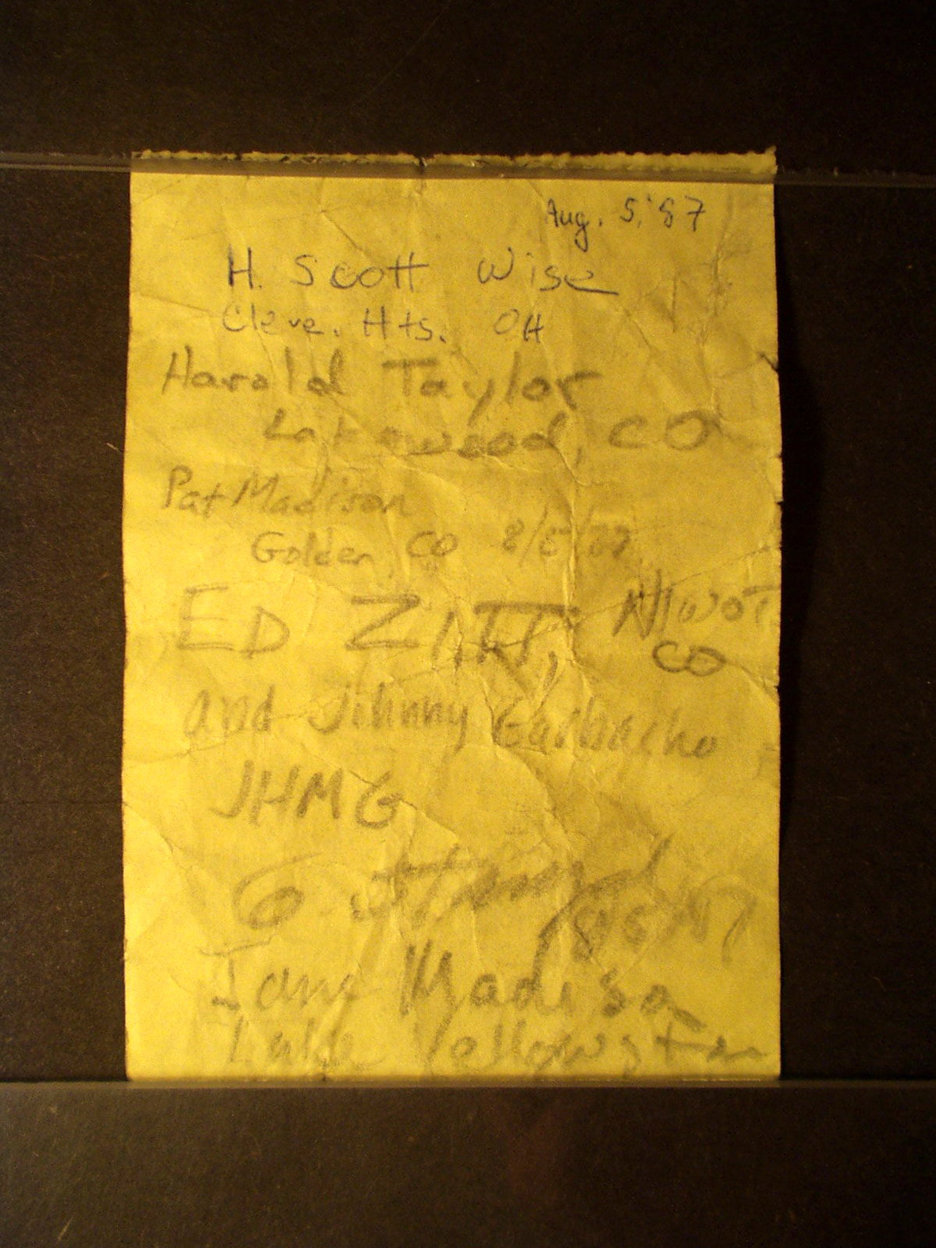 Aug. 5, '87
H. Scott Wise
Cleve. Hts. OH
Harold Taylor
Lakewood, CO
Pat Madison
Golden, CO 8/5/87
ED ZITT, NIWOT
CO
and Johnny
JHMG
8/5/87
Jane Madison
Lake Yellowstone